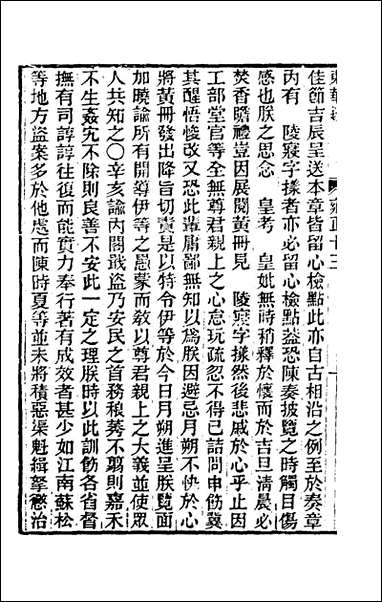 東華錄　雍正十三
佳節吉辰呈送本章皆留心檢點此亦自古相沿之例至於奏章
內有　陵寢字樣者亦必留心檢點蓋恐陳奏披覽之時觸目傷
感也朕之思念　皇考　皇妣無時稍釋於懷而於吉旦清晨必
焚香瞻禮豈因展閱黃冊見　陵寢字樣然後悲戚於心乎止因
工部堂官等全無尊君親上之心怠玩疏忽不得已詰問申飭冀
其醒悟悛改又恐此輩庸鄙無知以為朕因避忌月朔不快於心
將黃冊發出降旨切責是以特令伊等於今日月朔進呈朕覽面
加曉諭所有開導伊等之愚蒙而敎以尊君親上之大義並使眾
人共知之〇辛亥諭內閣戢盜乃安民之首務稂莠不翦則嘉禾
不生姦宄不除則良善不安此一定之理朕時以此訓飭各省督
撫有司諄諄往復而能實力奉行著有成效者甚少如江南蘇松
等地方盜案多於他處而陳時夏等並未將積惡渠魁緝拏懲治